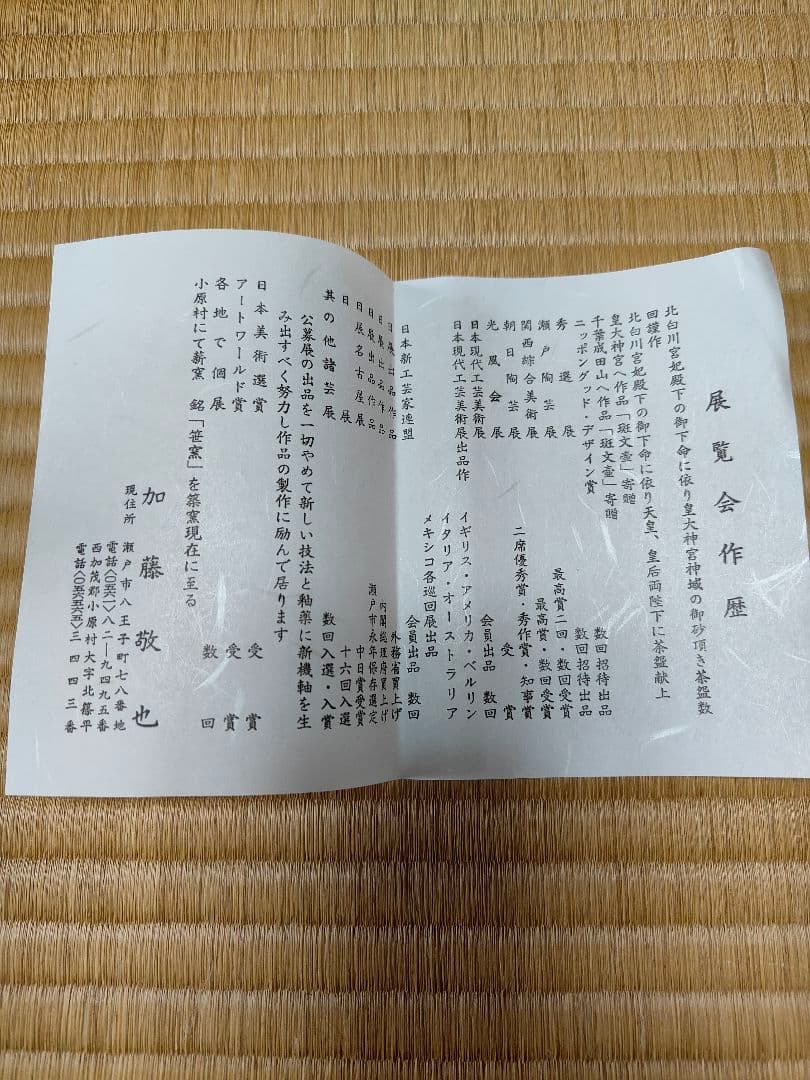 展覧会作歴
北白川宮妃殿下の御下命に依り皇大神宮神域の御砂頂き茶盌数
回謹作
北白川宮妃殿下の御下命に依り天皇、皇后両陛下に茶盌献上
皇大神宮へ作品「斑文壷」寄贈
千葉成田山へ作品「斑文壷」寄贈
ニッポングッド・デザイン賞 数回招待出品
秀選展 数回招待出品
瀬戸陶芸展 最高賞二回・数回受賞
関西綜合美術展 最高賞・数回受賞
朝日陶芸展 二席優秀賞・秀作賞・知事賞
光風会展 受賞
日本現代工芸美術展 会員出品 数回
日本現代工芸美術展出品作 イギリス・アメリカ・ベルリン
イタリア・オーストラリア
メキシコ各巡回展出品
日本新工芸家連盟 会員出品 数回
日展出品作品 外務省買上げ
日展出品作品 内閣総理府買上げ
日展出品作品 瀬戸市永年保存選定
日展名古屋展 中日賞受賞
日展 十六回入選
其の他諸芸展 数回入選・入賞
公募展の出品を一切やめて新しい技法と釉薬に新機軸を生
み出すべく努力し作品の製作に励んで居ります
日本美術選賞 受賞
アートワールド賞 受賞
各地で個展 数回
小原村にて薪窯 銘「笹窯」を築窯現在に至る
加藤敬也
現住所 瀬戸市八王子町七八番地
電話〈〇五六一〉八二―九四九五番
西加茂郡小原村大字北篠平
電話〈〇五六五六五〉三四四三番